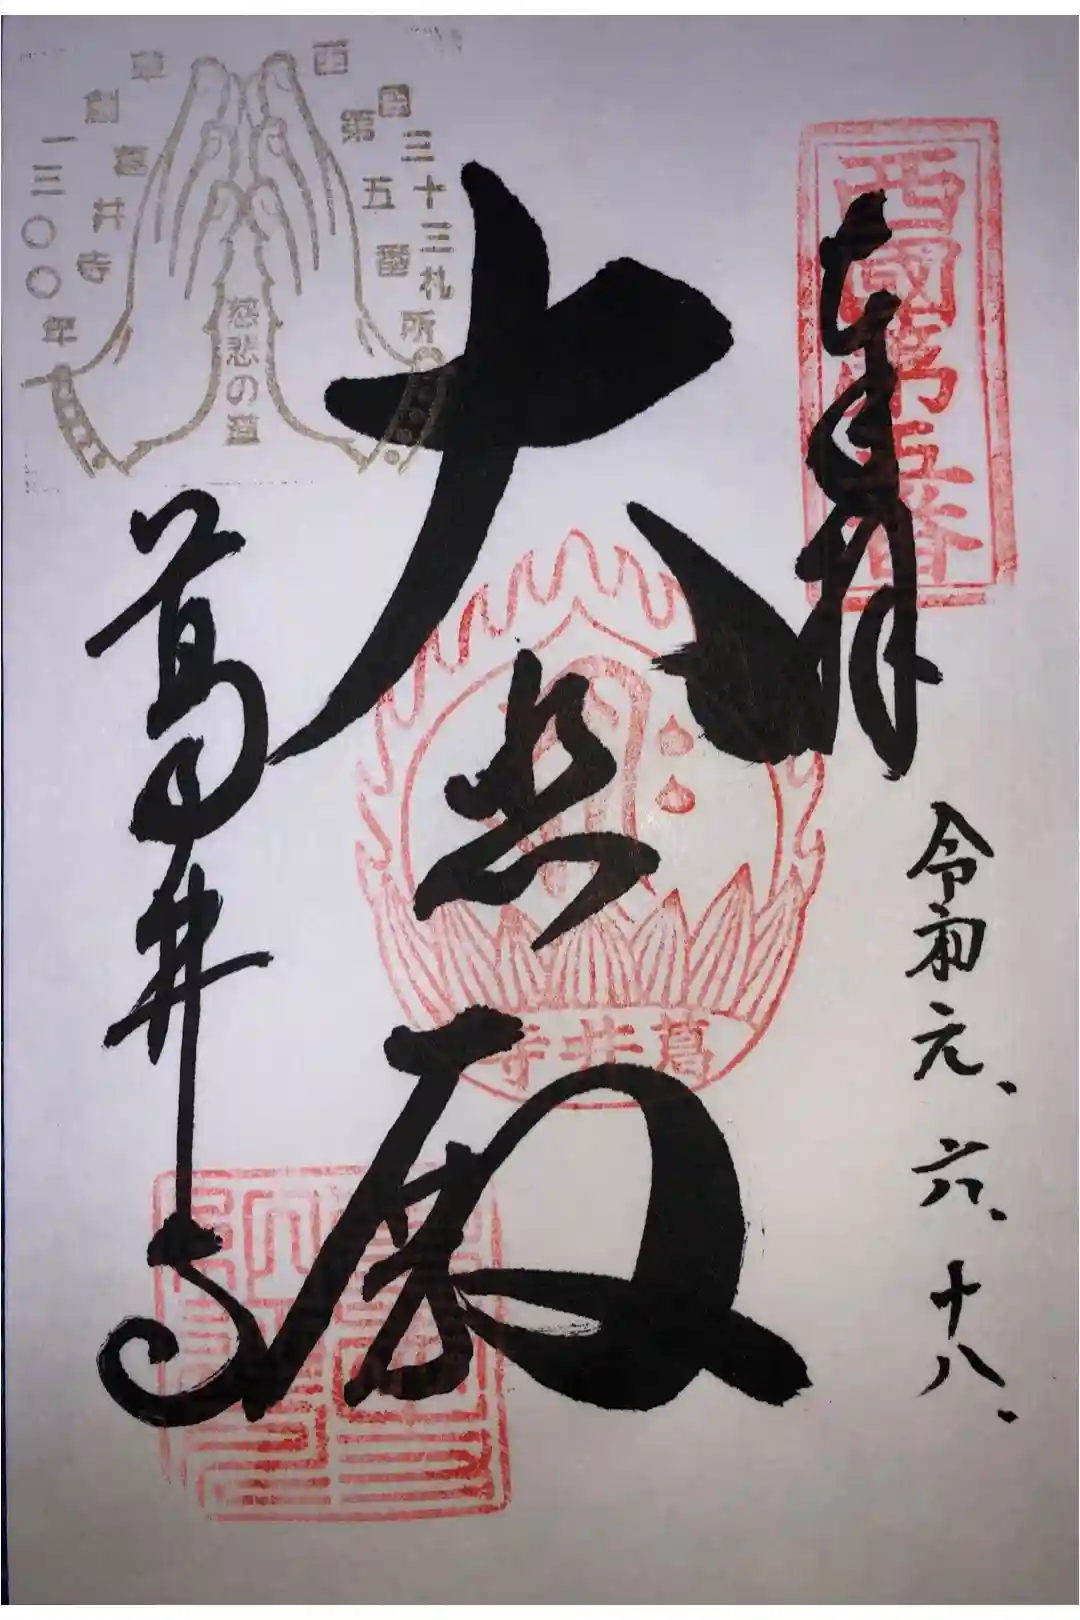 西國第五番
奉拝
令和元、六、十八、
大悲殿
葛井寺
葛井寺
西国三十三札所
第五番
葛井寺
草創一三〇〇年
慈悲の道